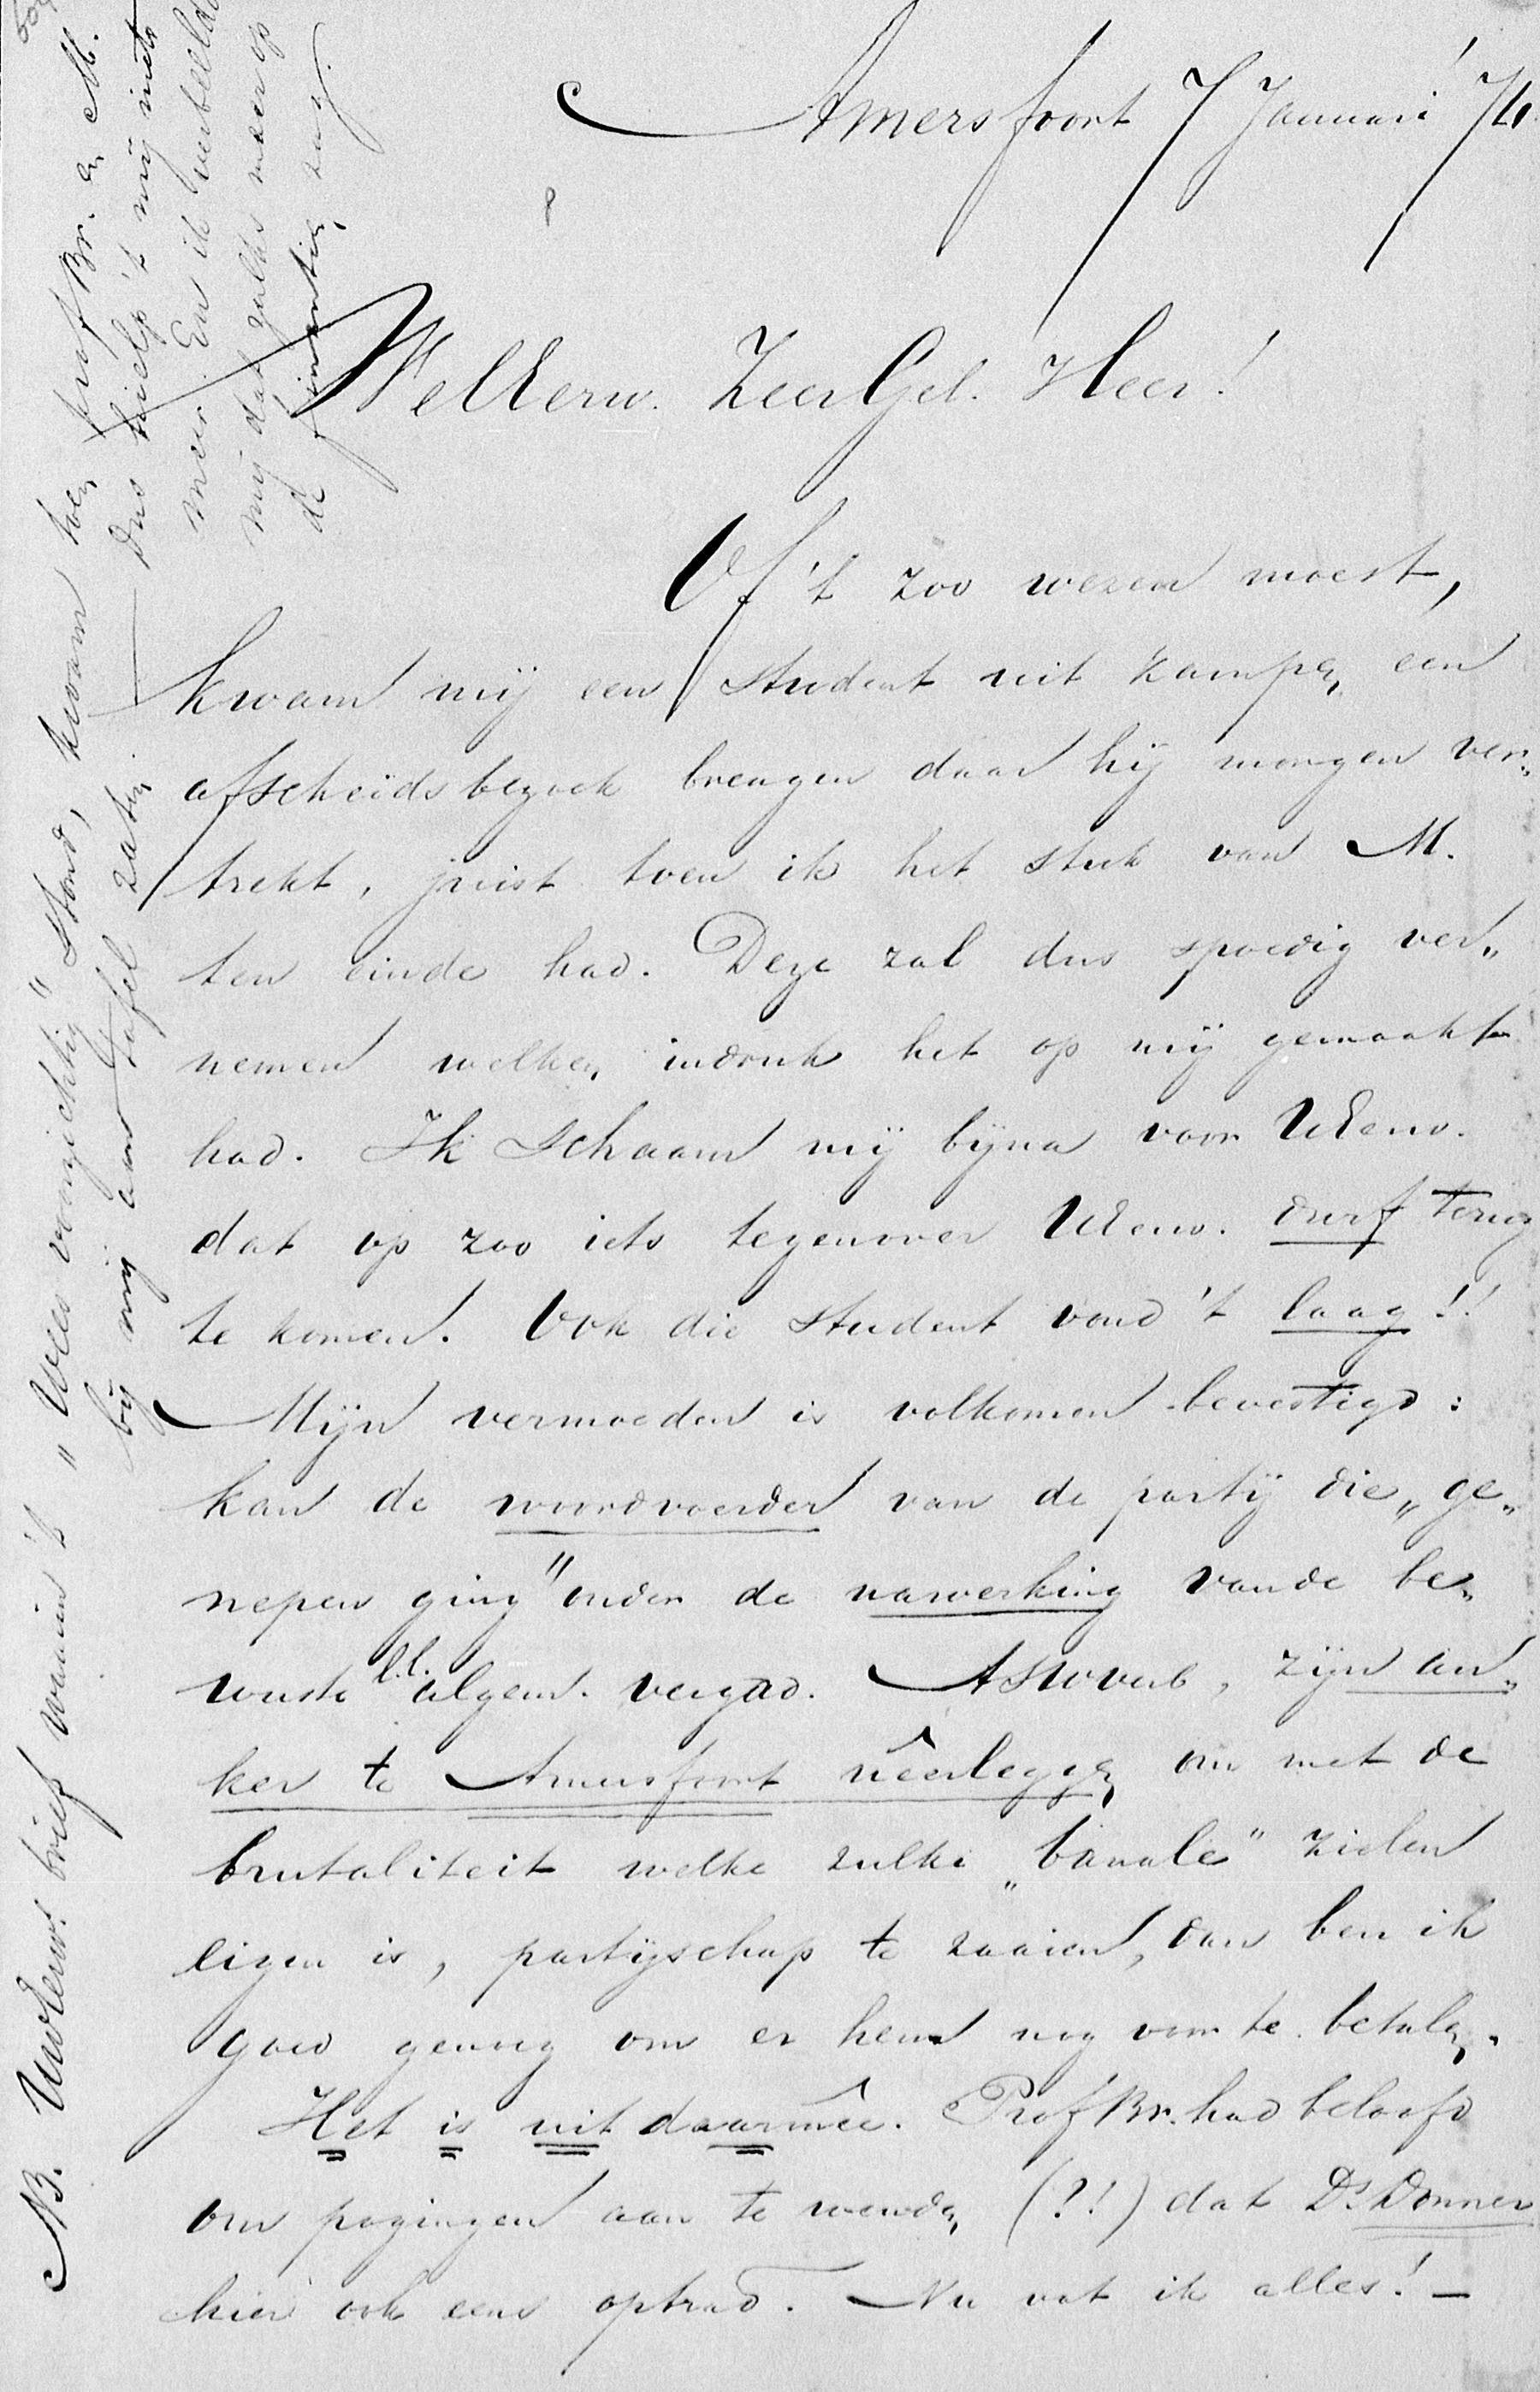 Amersfoort 7 Januari '74
WelEerw. ZeerGel. Heer!
Of 't zoo wezen moest,
kwam mij een student uit Kampen een
afscheidsbezoek brengen daar hij morgen ver„
trekt, juist toen ik het stuk van M.
ten einde had. Deze zal dus spoedig ver„
nemen welken indruk het op mij gemaakt
had. Ik schaam mij bijna voor UEerw.
dat op zoo iets tegenover UEerw. durf terug
te komen. Ook die student vond 't laag!!
Mijn vermoeden is volkomen bevestigd:
kan de woordvoerder van de partij die „ge„
nepen ging" onder de nawerking van de be„
wuste l.l. algem. vergad. ASWverb, zijn an„
ker te Amersfoort nêerleggen om met de
brutaliteit welke zulke „banale" zielen
eigen is, partijschap te zaaien, dan ben ik
goed genoeg om er hem nog voor te betalen.
Het is uit daarmêe. Prof Br. had beloofd
om pogingen aan te wenden (?!) dat Ds Donner
hier ook eens optrad. Nu vat ik alles! —
NB. UwEerws brief waarin 't „Wees voorzichtig" stond, kwam toen prof Br. en M.
bij mij aan tafel zaten. — Dus hielp 't mij niets
meer. En ik verbeeldde
mij dat zulks meer op
de finantiën zag.